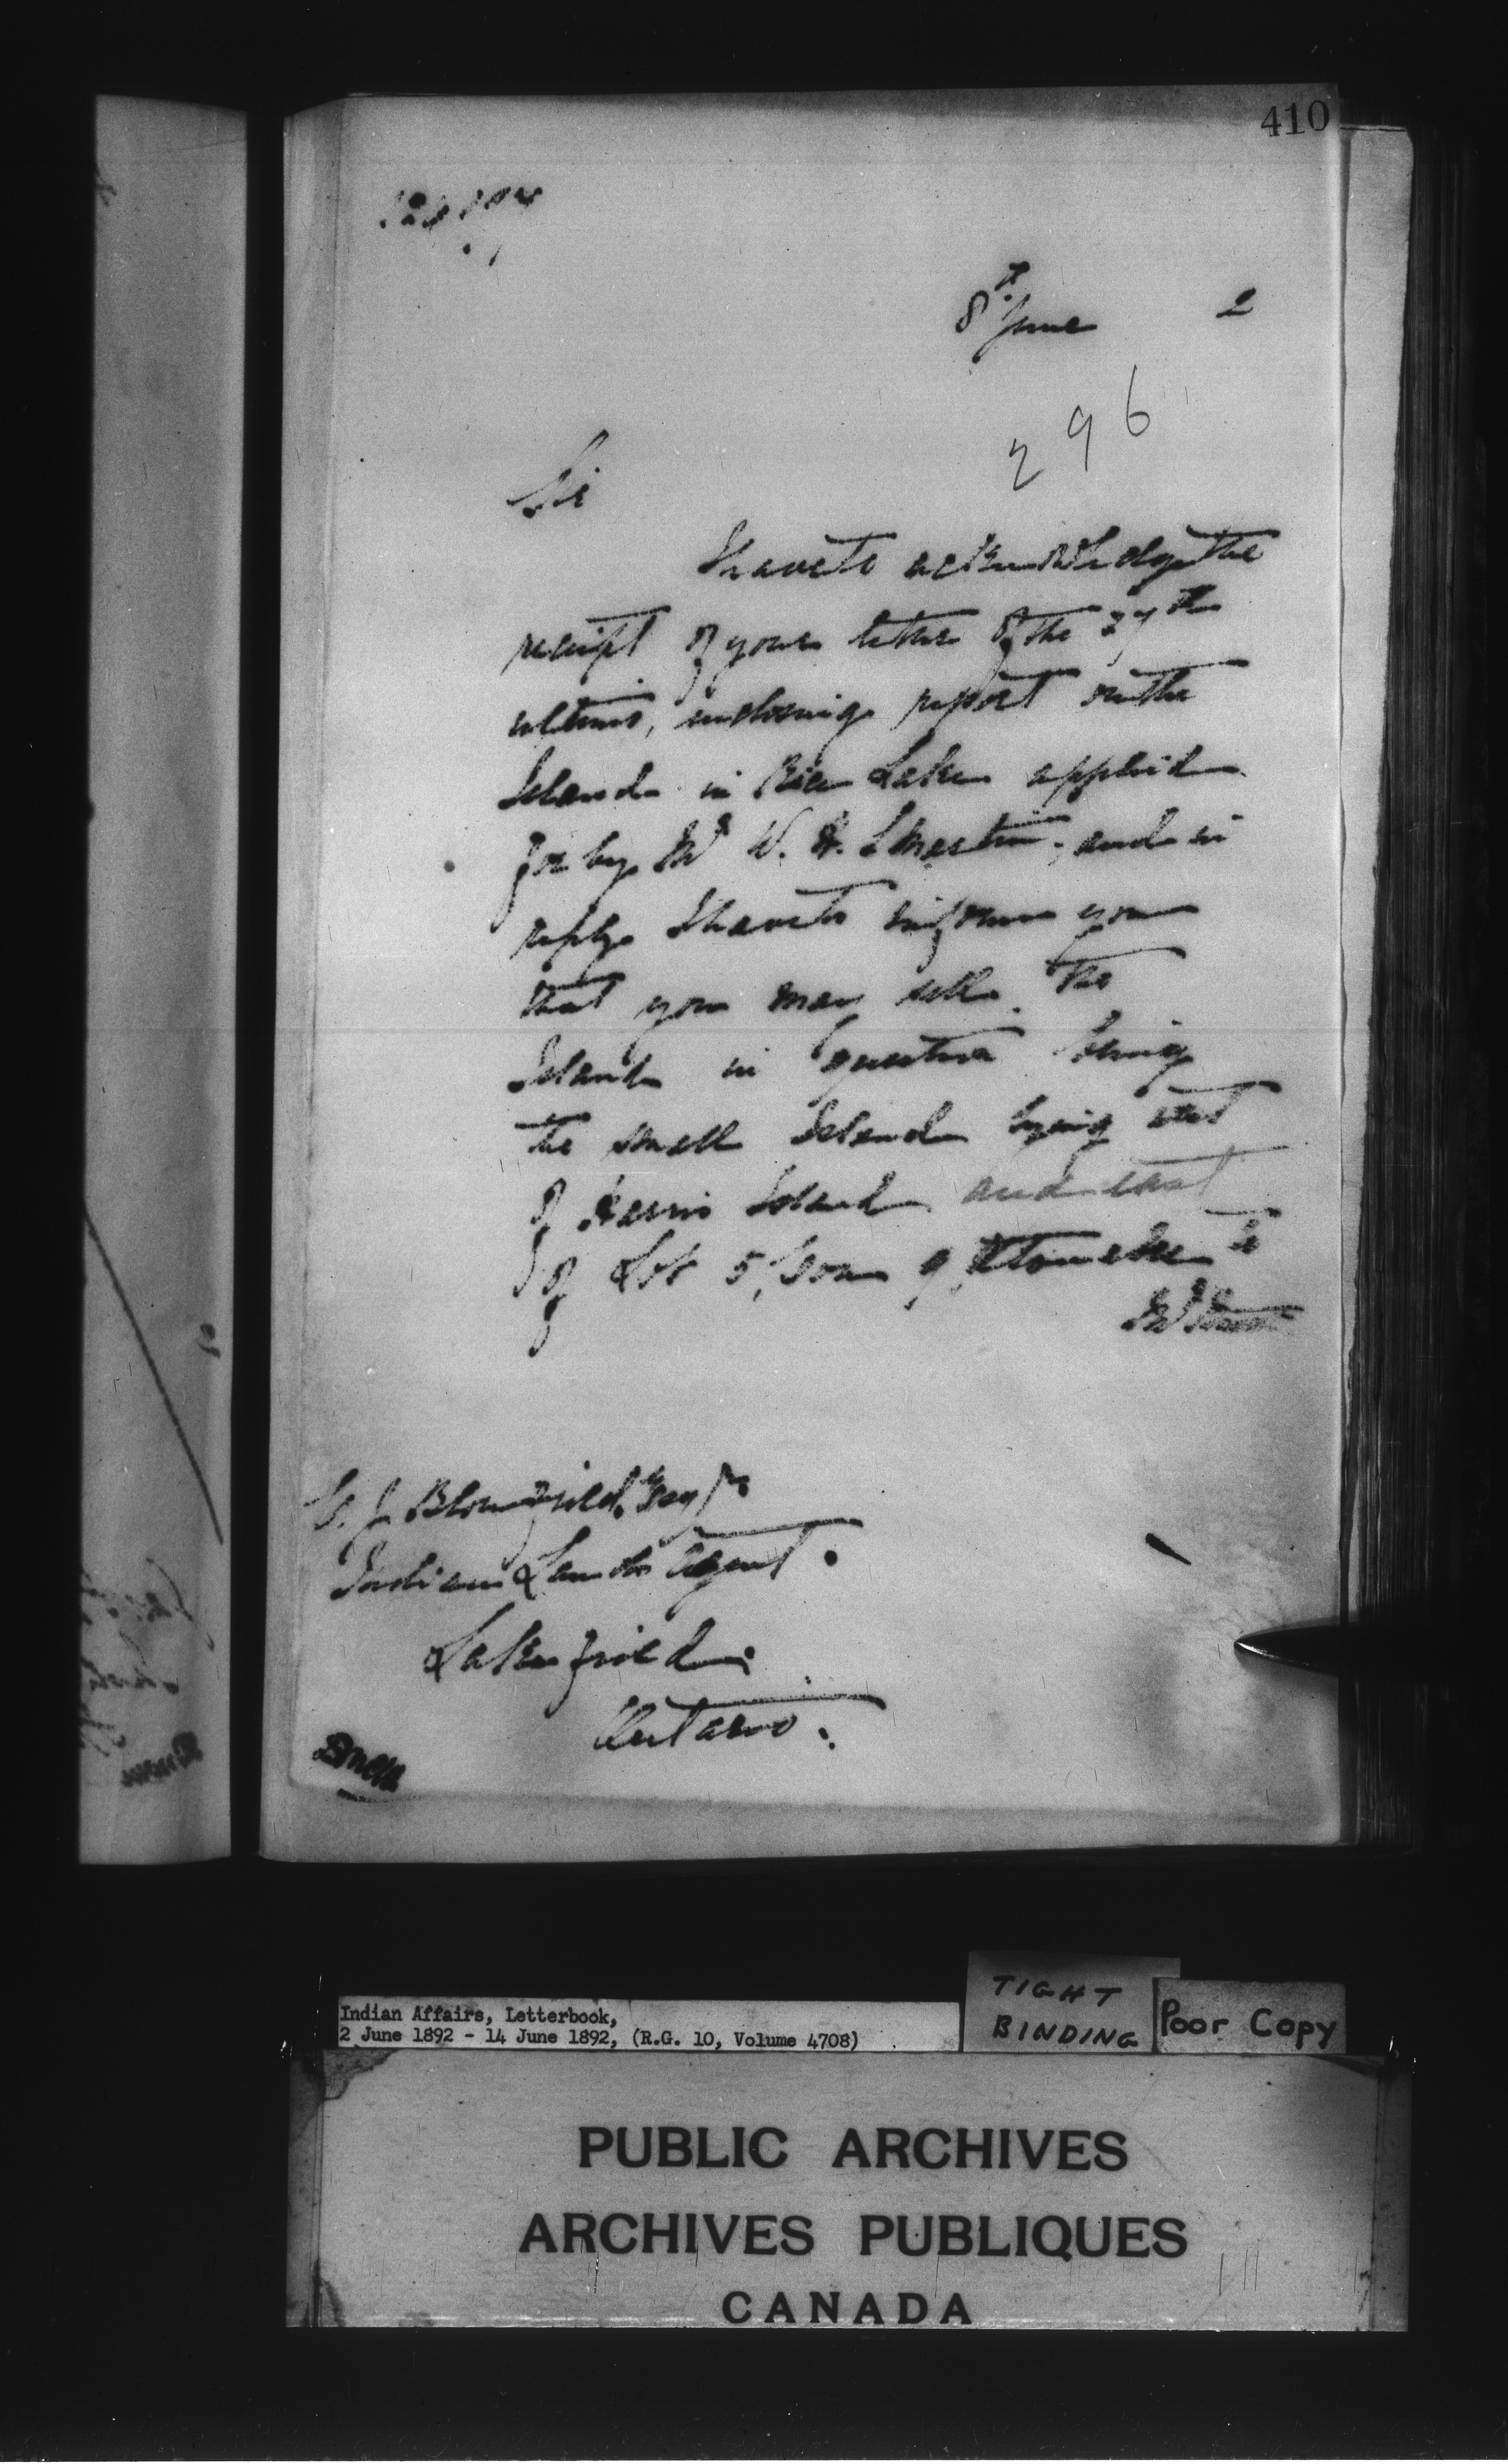 410
8th June 2
296
Sir
I have to acknowledge the
receipt of your letter of the 27th
ultimo, enclosing report on the
Island in Rice Lake applied
for by Mr W. H. and in
reply I have to inform you
that you may sell the
Island in question being
the small Island lying west
of Harris Island and east
of Lot 5, Con 9, Otonabee to
Mr
Blomfield, Esqr.
Indian Lands Agent.
Lakefield,
Ontario.
Indian Affairs, Letterbook,
2 June 1892 - 14 June 1892, (R.G. 10, Volume 4708)
TIGHT
BINDING
Poor Copy
PUBLIC ARCHIVES
ARCHIVES PUBLIQUES
CANADA